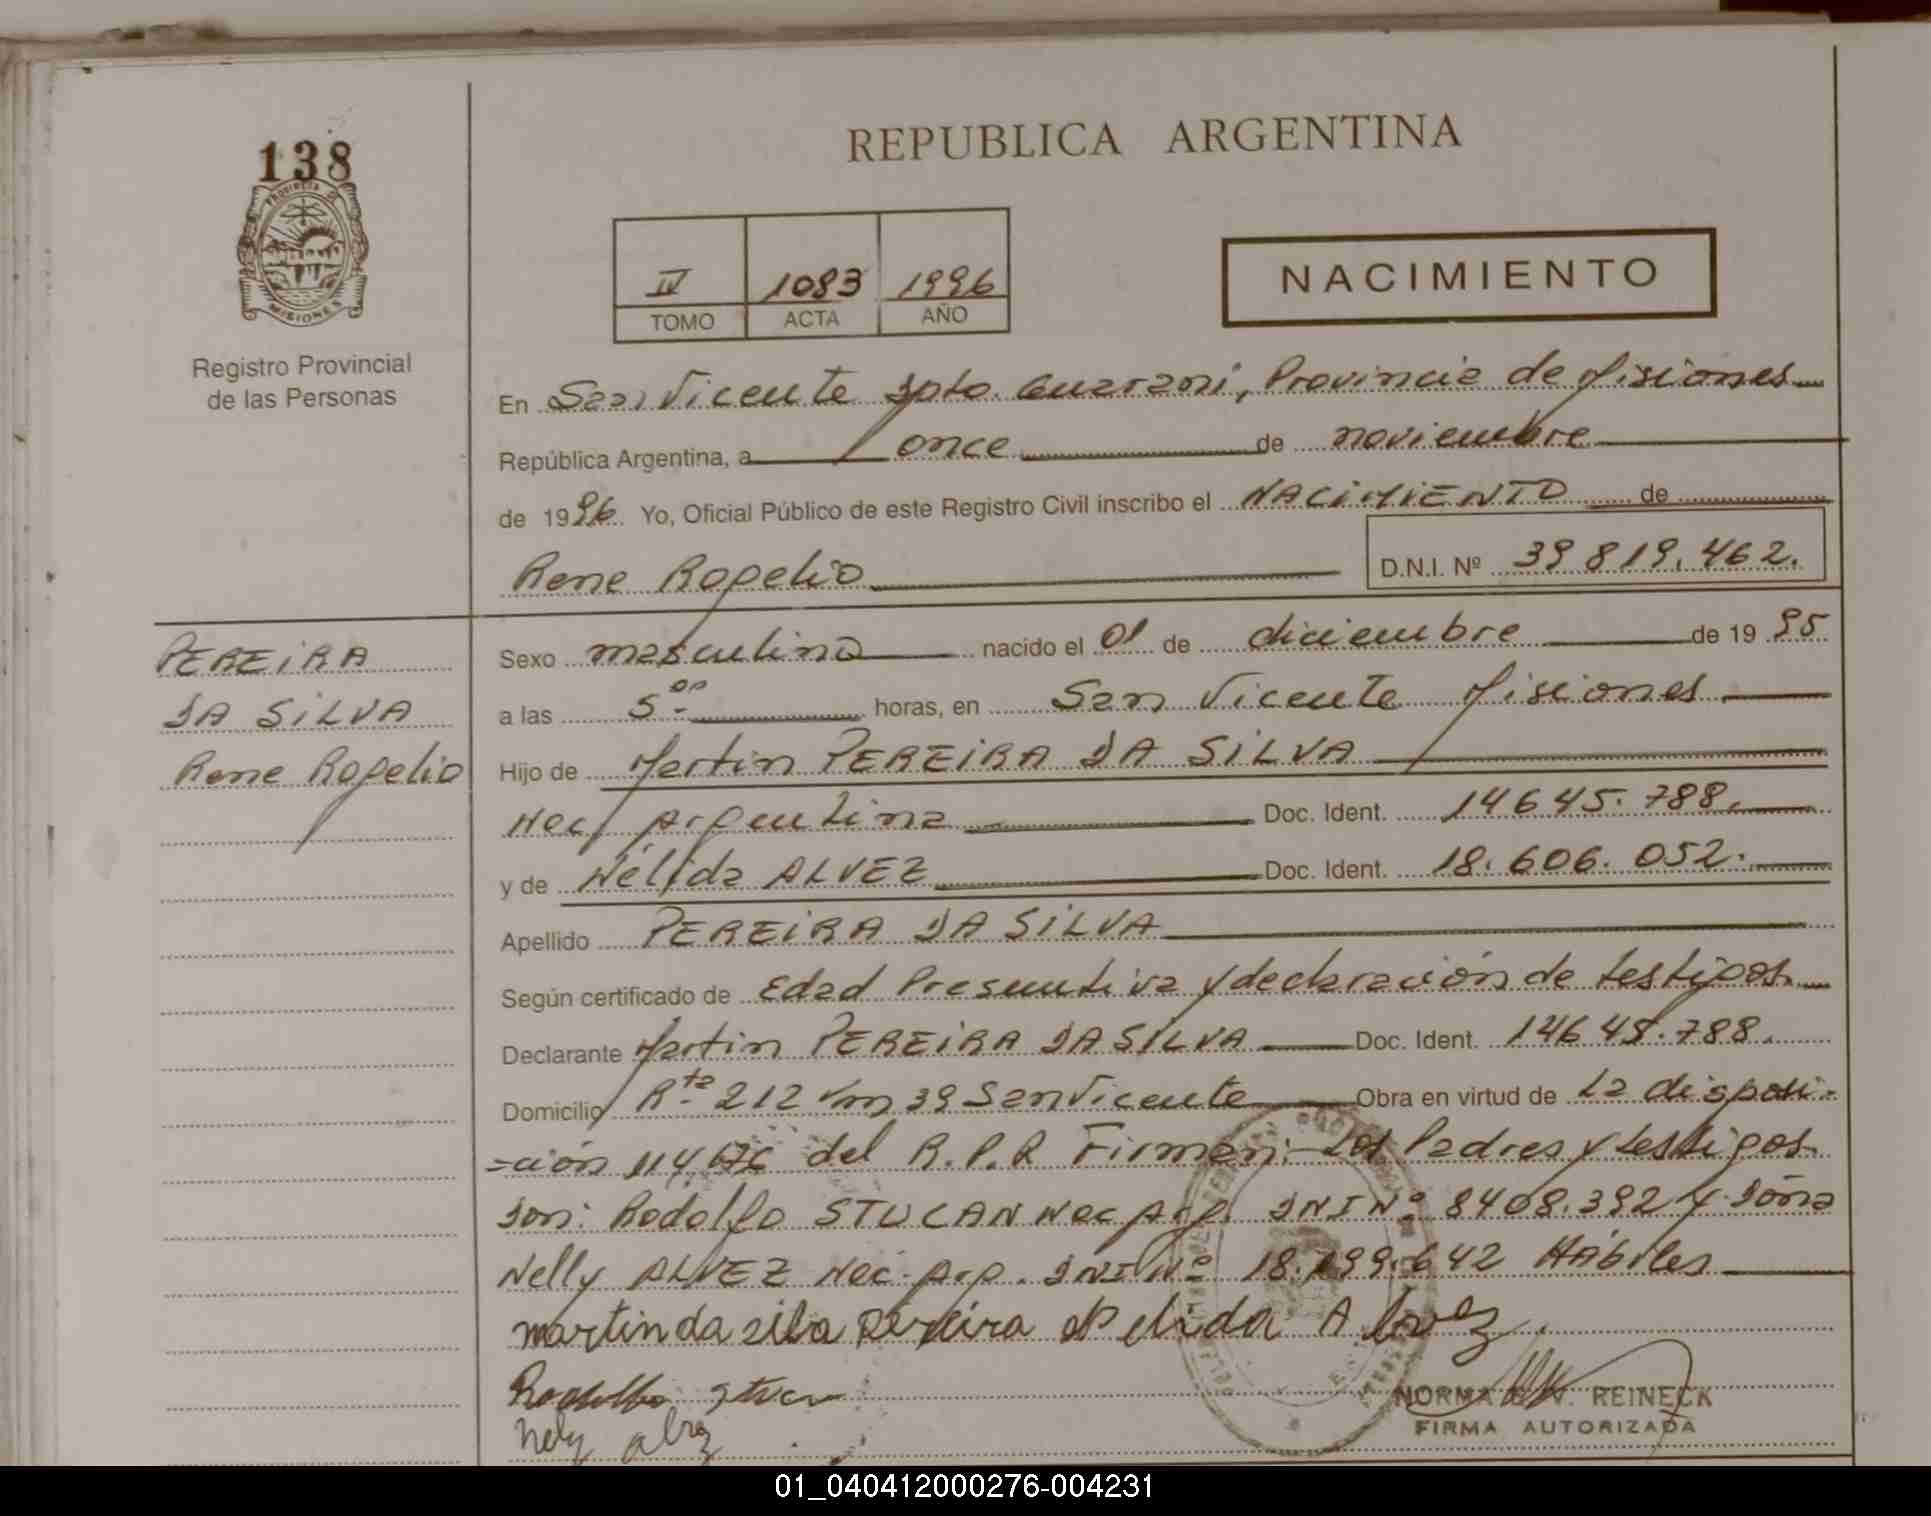 138
PROVINCIA DE
MISIONES
Registro Provincial
de las Personas
REPUBLICA ARGENTINA
IV 1083 1996
TOMO ACTA AÑO
NACIMIENTO
En San Vicente Dpto. Guarani, Provincia de Misiones
República Argentina, a once de noviembre
de 1996 Yo, Oficial Público de este Registro Civil inscribo el NACIMIENTO de
Rene Rogelio D.N.I. Nº 39 819.462.
PEREIRA
DA SILVA
Rene Rogelio
Sexo masculino nacido el 01 de diciembre de 1995
a las 5.00 horas, en San Vicente Misiones
Hijo de Martin PEREIRA DA SILVA
Nac. Argentina Doc. Ident. 14645.788.
y de Nélida ALVEZ Doc. Ident. 18.606.052.
Apellido PEREIRA DA SILVA
Según certificado de Edad Presuntiva y declaración de testigos.
Declarante Martin PEREIRA DA SILVA Doc. Ident. 14645.788.
Domicilio Rta 212 Km 39 San Vicente Obra en virtud de La disposi-
=ción 114/96 del R.P.P. Firman: Los Padres y testigos
Don: Rodolfo STUCAN Nac Arg. DNI Nº 8408.392 y Doña
Nelly ALVEZ Nac. Arg. DNI Nº 18.199.642 HAbiles
martin da silva pereira Nelida Alvez
Rodolfo Stucan
Nely alvez
NORMA V. REINECK
FIRMA AUTORIZADA
01_040412000276-004231